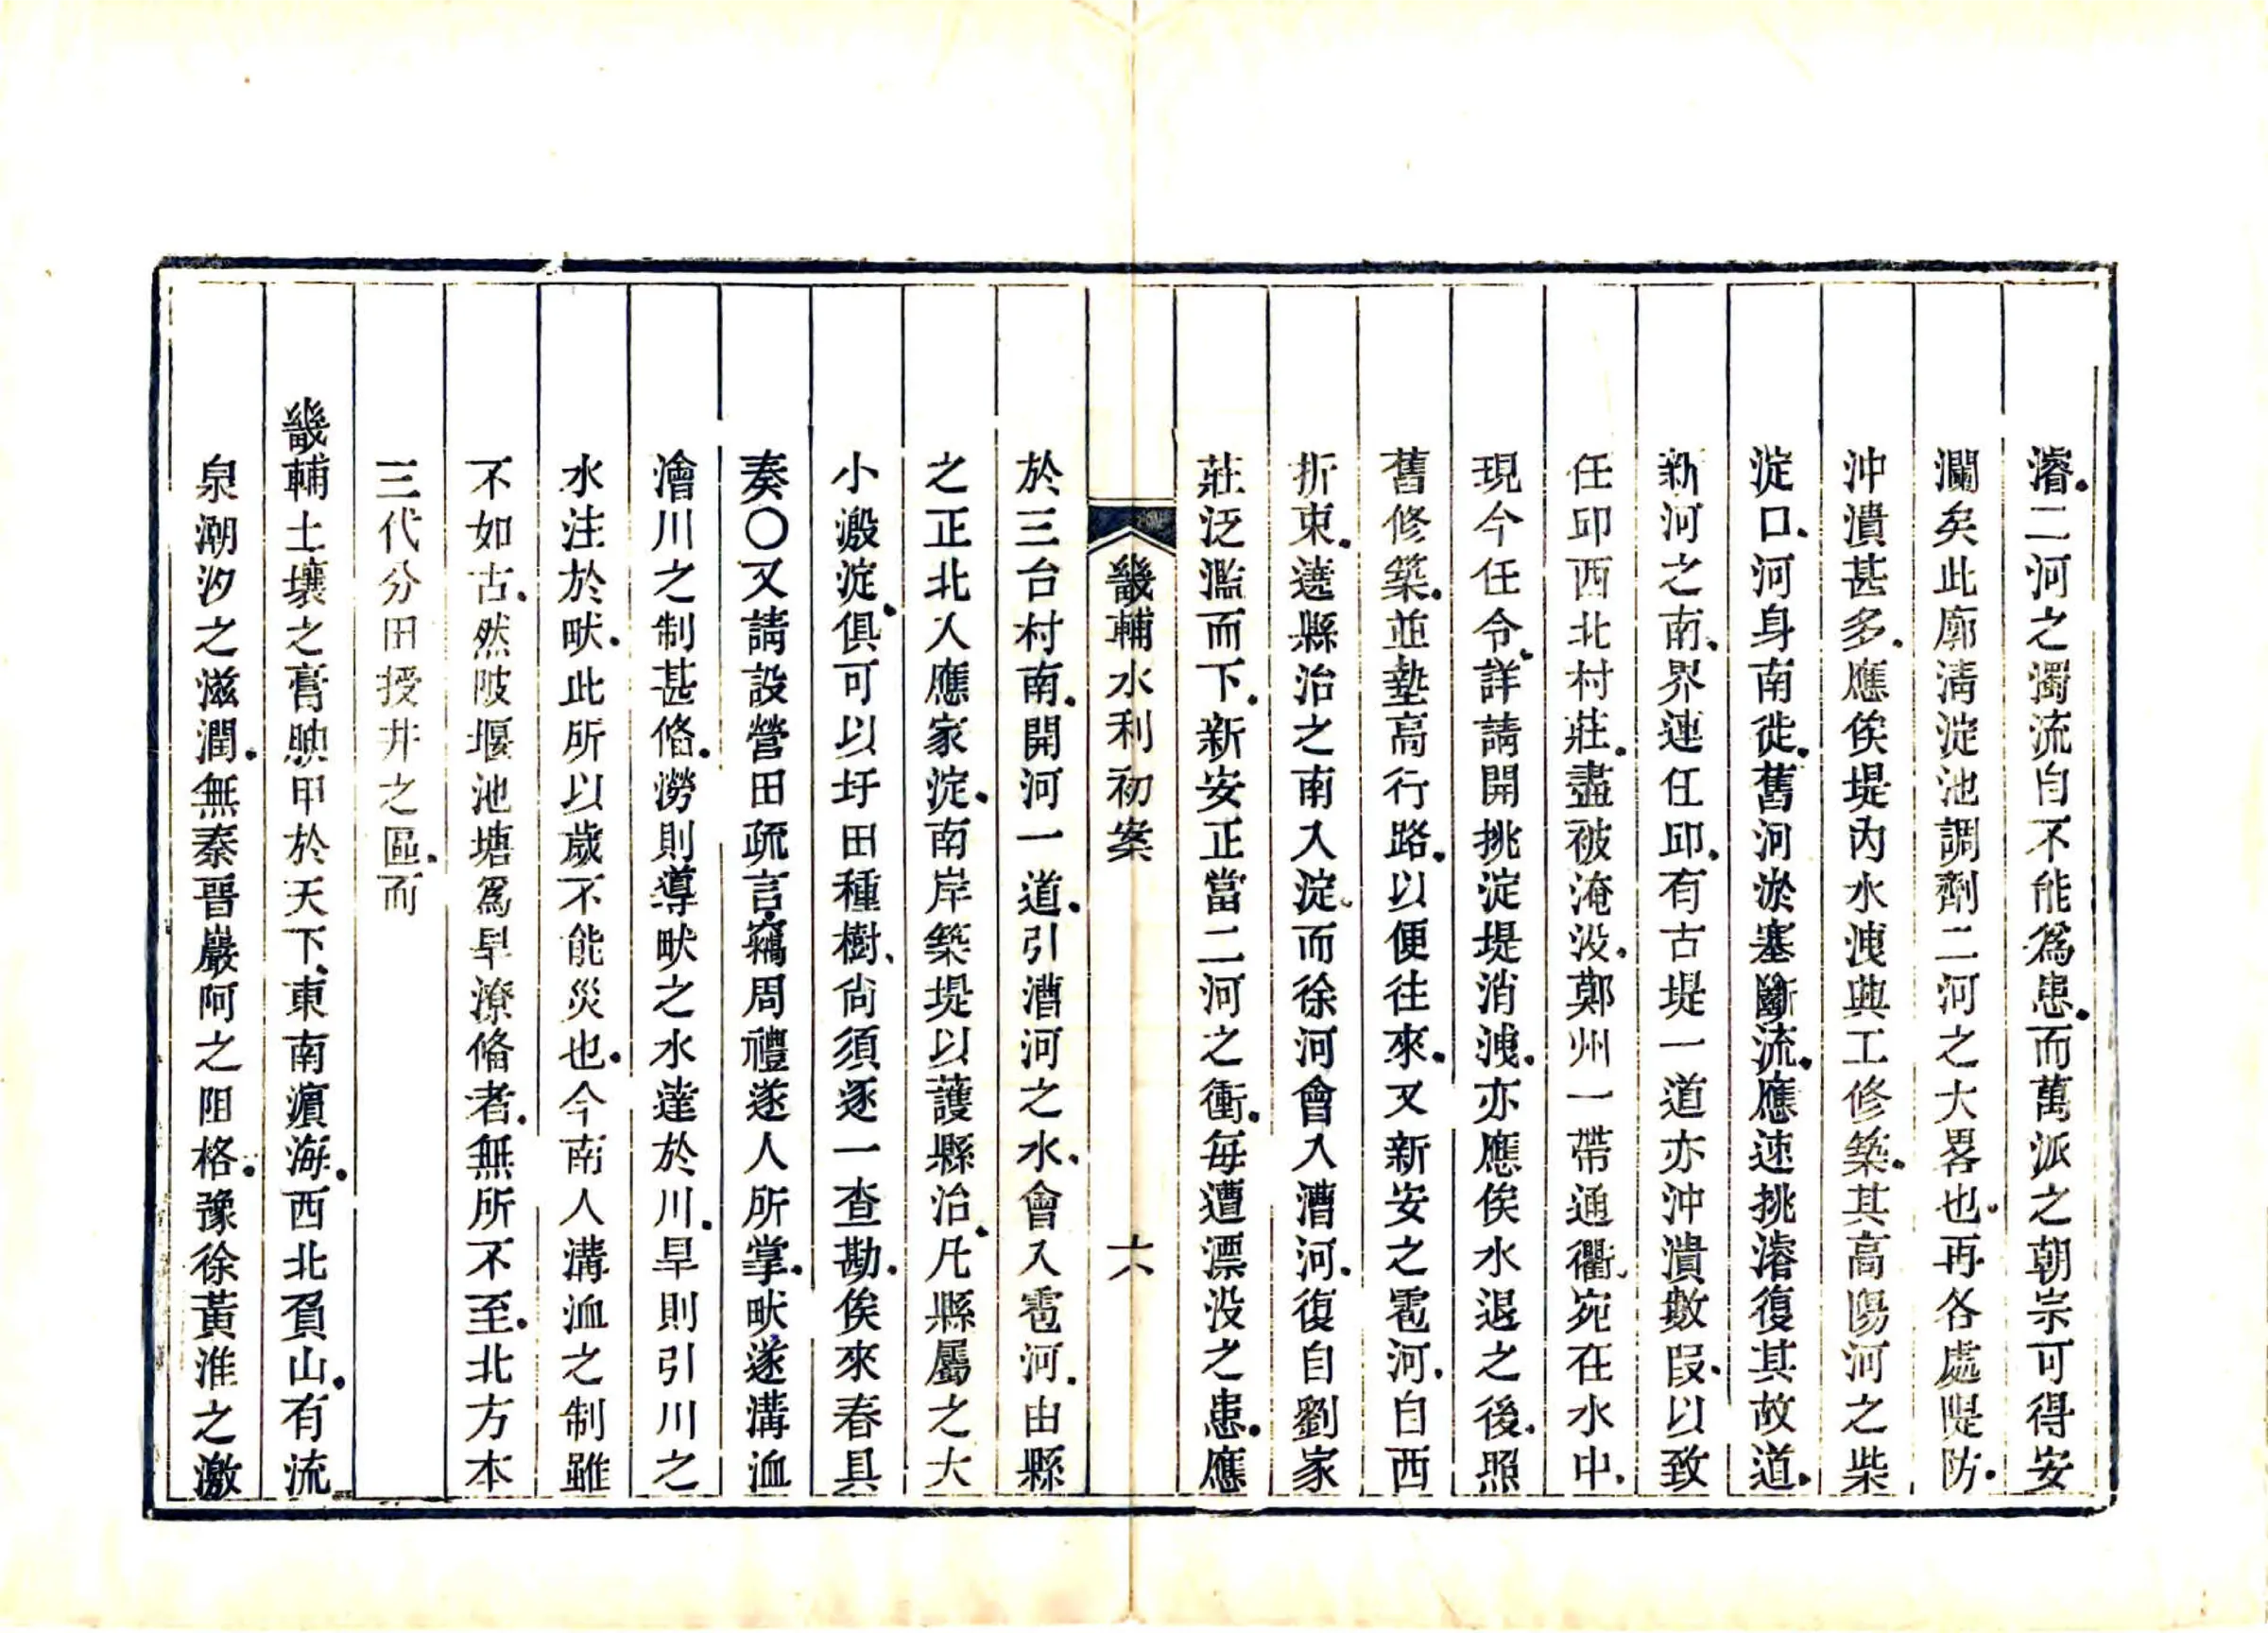 濬二河之濁流自不能為患而萬派之朝宗可得安
瀾矣此廓清淀池調劑二河之大畧也再各處隄防
沖潰甚多應俟堤內水洩興工修築其高陽河之柴
淀口河身南徙舊河淤塞斷流應速挑濬復其故道
新河之南界連任邱有古堤一道亦沖潰數段以致
任邱西北村莊盡被淹沒鄭州一帶通衢宛在水中
現今任令詳請開挑淀堤消洩亦應俟水退之後照
舊修築並墊高行路以便往來又新安之雹河自西
折東遶縣治之南入淀而徐河會入漕河復自劉家
莊泛濫而下新安正當二河之衝每遭漂沒之患應
畿輔水利初案
六
於三台村南開河一道引漕河之水會入雹河由縣
之正北入應家淀南岸築堤以護縣治凡縣屬之大
小澱淀俱可以圩田種樹尙須逐一查勘俟來春具
奏〇又請設營田疏言竊周禮遂人所掌畎遂溝洫
澮川之制甚俻澇則導畎之水達於川旱則引川之
水注於畎此所以歲不能災也今南人溝洫之制雖
不如古然陂堰池塘爲旱潦俻者無所不至北方本
三代分田授井之區而
畿輔土壤之膏腴甲於天下東南濵海西北負山有流
泉潮汐之滋潤無秦晉巖阿之阻格豫徐黃淮之激